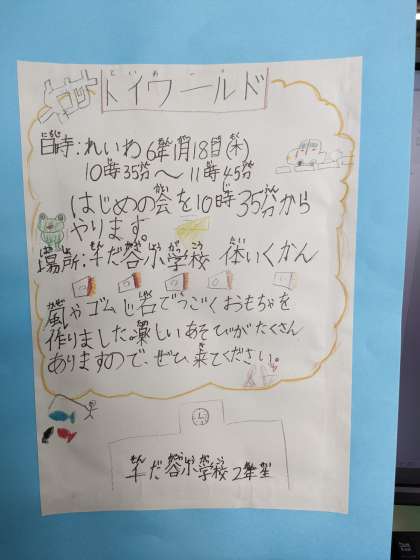 トイワールド
日時:れいわ6年1月18日(木)
10時35分〜11時45分
はじめの会を10時35分から
やります。
場所:千だ谷小学校 体いくかん
風やゴムじ石でうごくおもちゃを
作りました。楽しいあそびがたくさん
ありますので、ぜひ来てください。
千だ谷小学校2年生